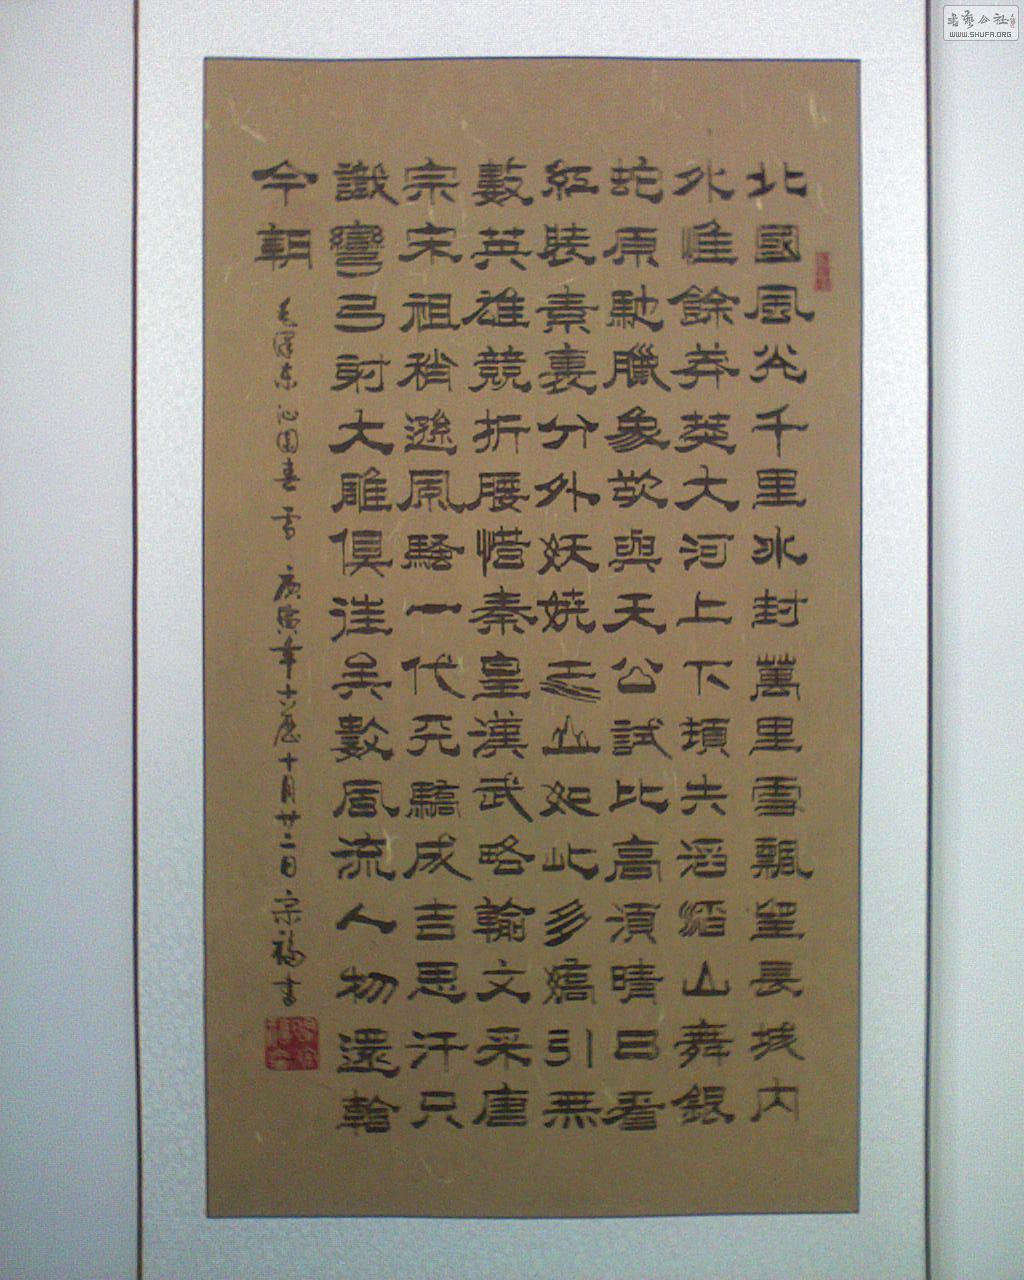 北國風光千里冰封萬里雪飄望長城內
外惟餘莽莽大河上下頓失滔滔山舞銀
蛇原馳臘象欲與天公試比高須晴日看
紅裝素裹分外妖嬈江山如此多嬌引無
數英雄競折腰惜秦皇漢武略輸文采唐
宗宋祖稍遜風騷一代天驕成吉思汗只
識彎弓射大雕俱往矣數風流人物還看
今朝 毛澤东沁園春雪 庚寅年古历十月廿二日宗福書
书艺公社
WWW.SHUFA.ORG